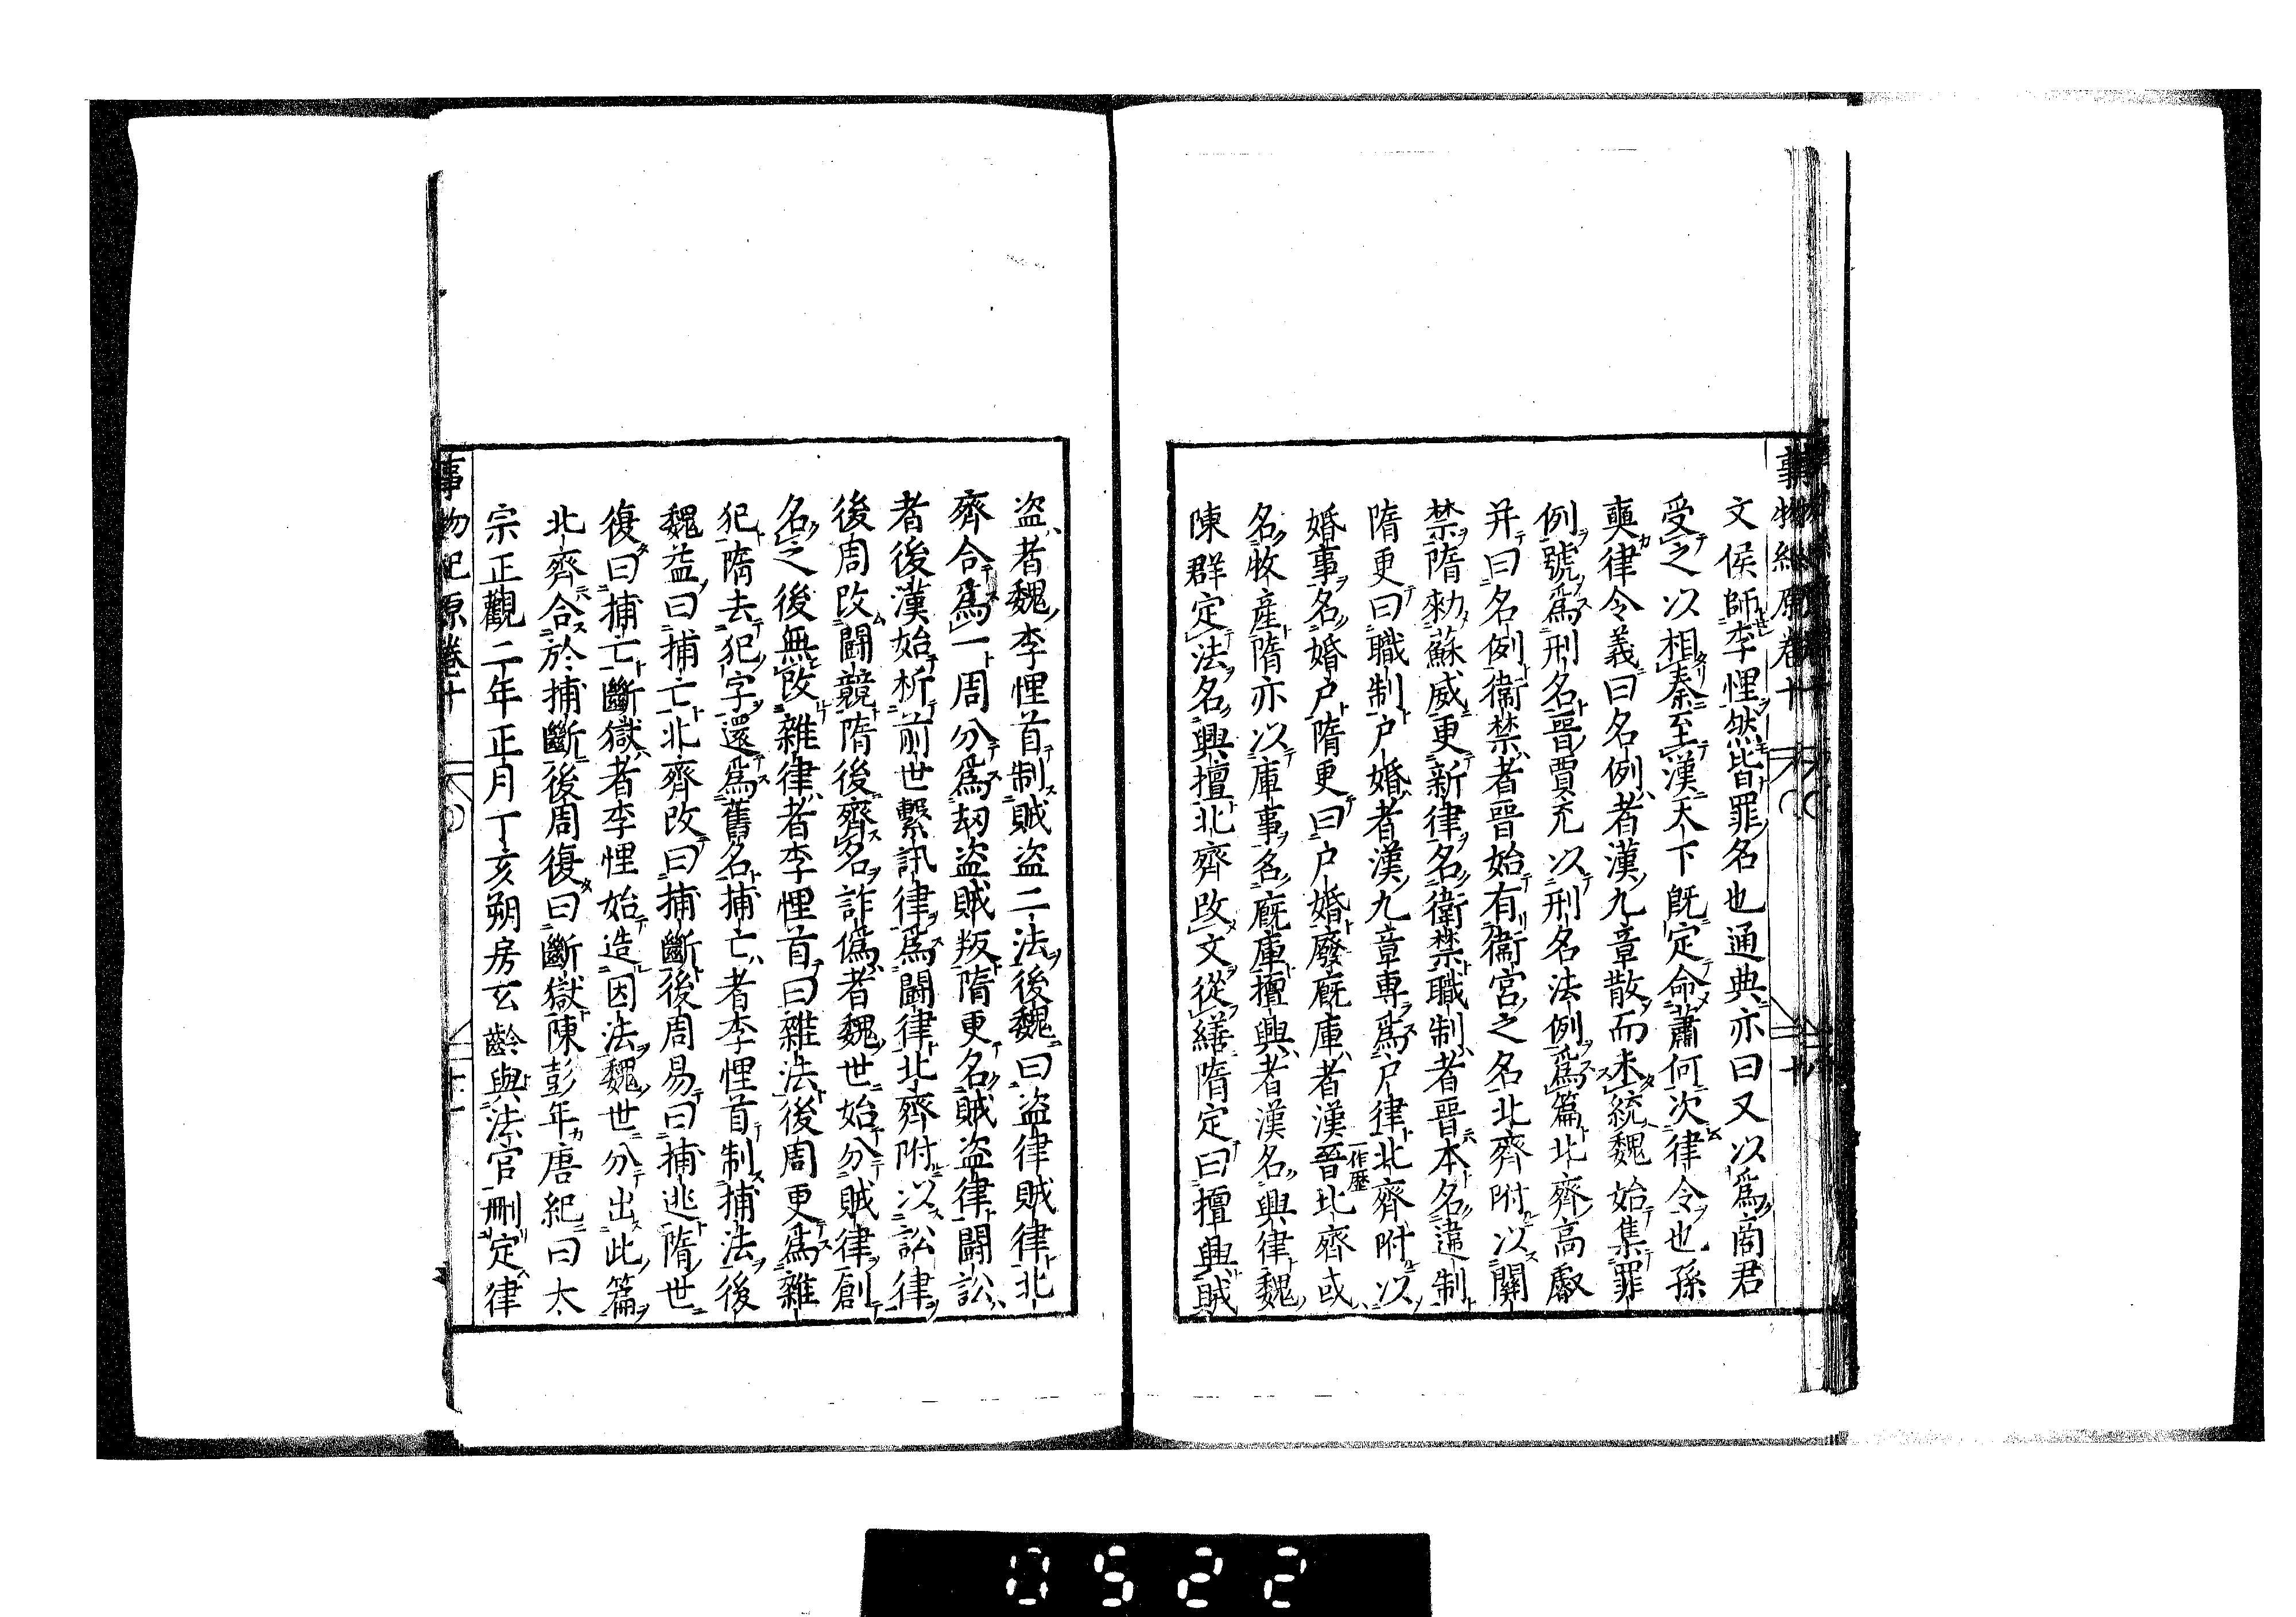 事物紀原卷十
十
文侯師李悝然皆罪名也通典亦曰又以爲商君
受之以相秦至漢天下旣定命蕭何次律令也孫
奭律令義曰名例者漢九章散而未統魏始集罪
例號爲刑名晉賈充以刑名法例爲篇北齊高叡
并曰名例衞禁者晉始有衞宮之名北齊附以關
禁隋勑蘇威更新律名衛禁職制者晉本名違制
隋更曰職制户婚者漢九章專爲户律北齊附以
婚事名婚户隋更曰户婚廢厩庫者漢晉一作歷北齊或
名牧産隋亦以庫事名厩庫擅興者漢名興律魏
陳群定法名興擅北齊改文從繕隋定曰擅興賊
盗者魏李悝首制賊盗二法後魏曰盗律賊律北
齊合爲一周分爲刼盗賊叛隋更名賊盗律鬪訟
者後漢始析前世繫訊律爲鬪律北齊附以訟律
後周改鬪競隋後齊名詐僞者魏世始分賊律創
名之後無改雜律者李悝首曰雜法後周更爲雜
犯隋去犯字還爲舊名捕亡者李悝首制捕法後
魏益曰捕亡北齊改曰捕斷後周易曰捕逃隋世
復曰捕亡斷獄者李悝始造因法魏世分出此篇
北齊合於捕斷後周復曰斷獄陳彭年唐紀曰太
宗正觀二年正月丁亥朔房玄齡與法官刪定律
事物紀原卷十
十一
0522